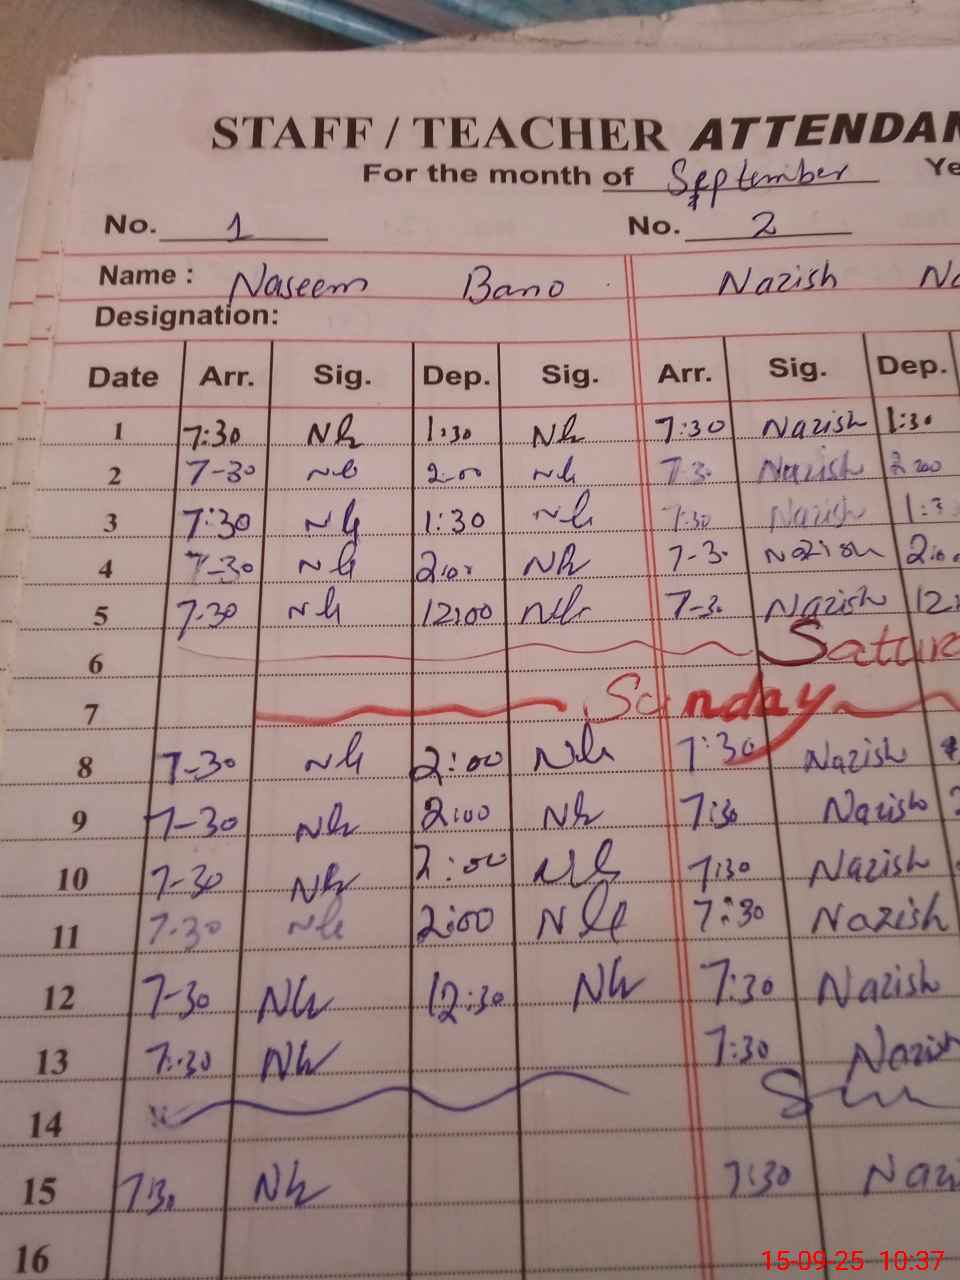 STAFF / TEACHER ATTENDAN
For the month of September Ye
No. 1 No. 2
Name : Naseem Bano Nazish
Designation:
Date Arr. Sig. Dep. Sig. Arr. Sig. Dep.
1 7:30 Nh 1:30 Nh 7:30 Nazish 1:30
2 7-30 Nh 2:00 Nh 7-3. Nazish 2:00
3 7:30 Nh 1:30 Nh 7:30 Nazish 1:3
4 7-30 Nh 2:00 Nh 7-3. Nazish 2:0
5 7-30 Nh 12:00 Nh 7-3. Nazish 12:
6 Satur
7 Sunday
8 7-30 Nh 2:00 Nh 7:30 Nazish
9 7-30 Nh 2:00 Nh 7:30 Nazish
10 7-30 Nh 2:00 Nh 7:30 Nazish
11 7-30 Nh 2:00 Nh 7:30 Nazish
12 7-30 Nh 12:30 Nh 7:30 Nazish
13 7:-30 Nh 7:30 Nazish
14 Sun
15 7:30 Nh 7:30 Nazi
16
15-09-25 10:37